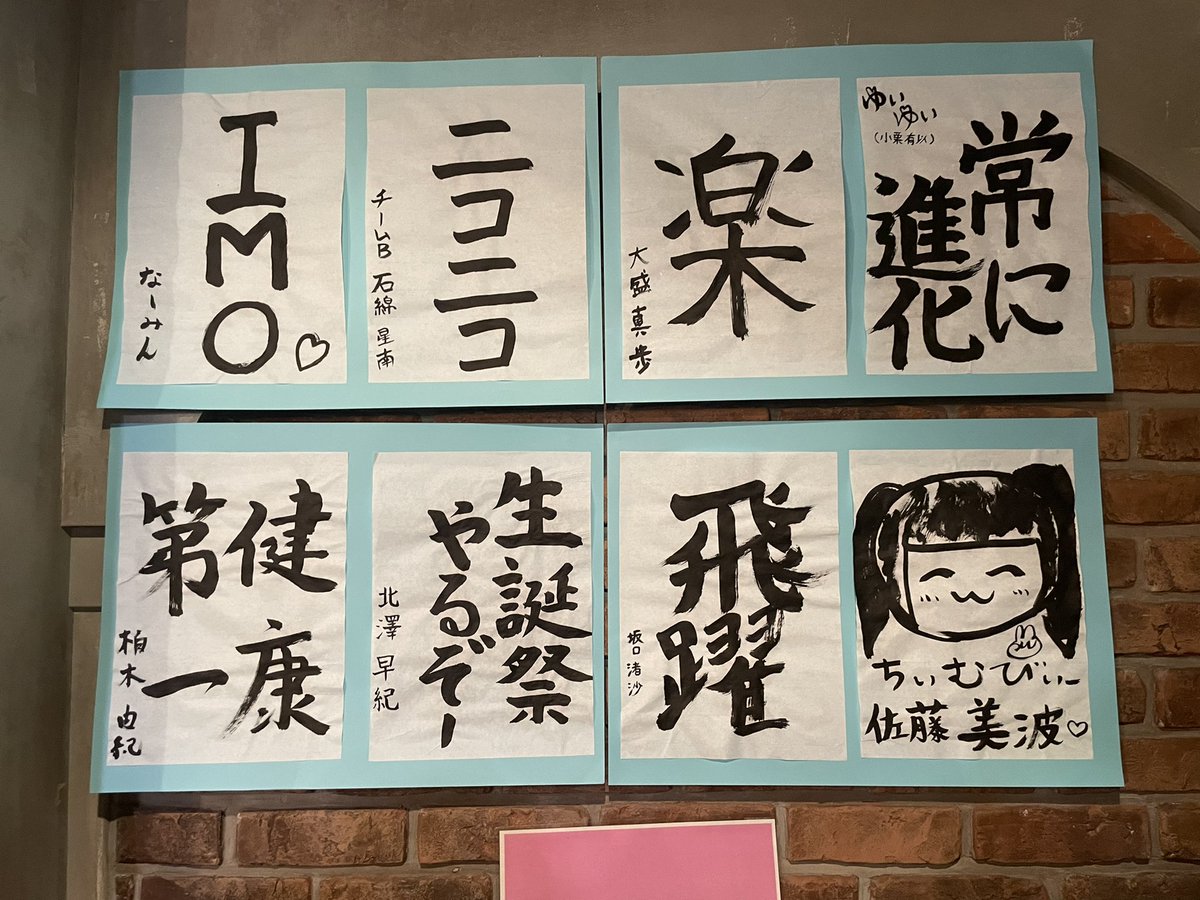 IMO♡
なーみん
ニコニコ
チームB 石綿 星南
楽
大盛 真歩
ゆいゆい
(小栗有以)
常に
進化
健康
第一
柏木 由紀
生誕祭
やるぞー
北澤 早紀
飛躍
坂口 渚沙
ちぃむびぃー
佐藤 美波♡